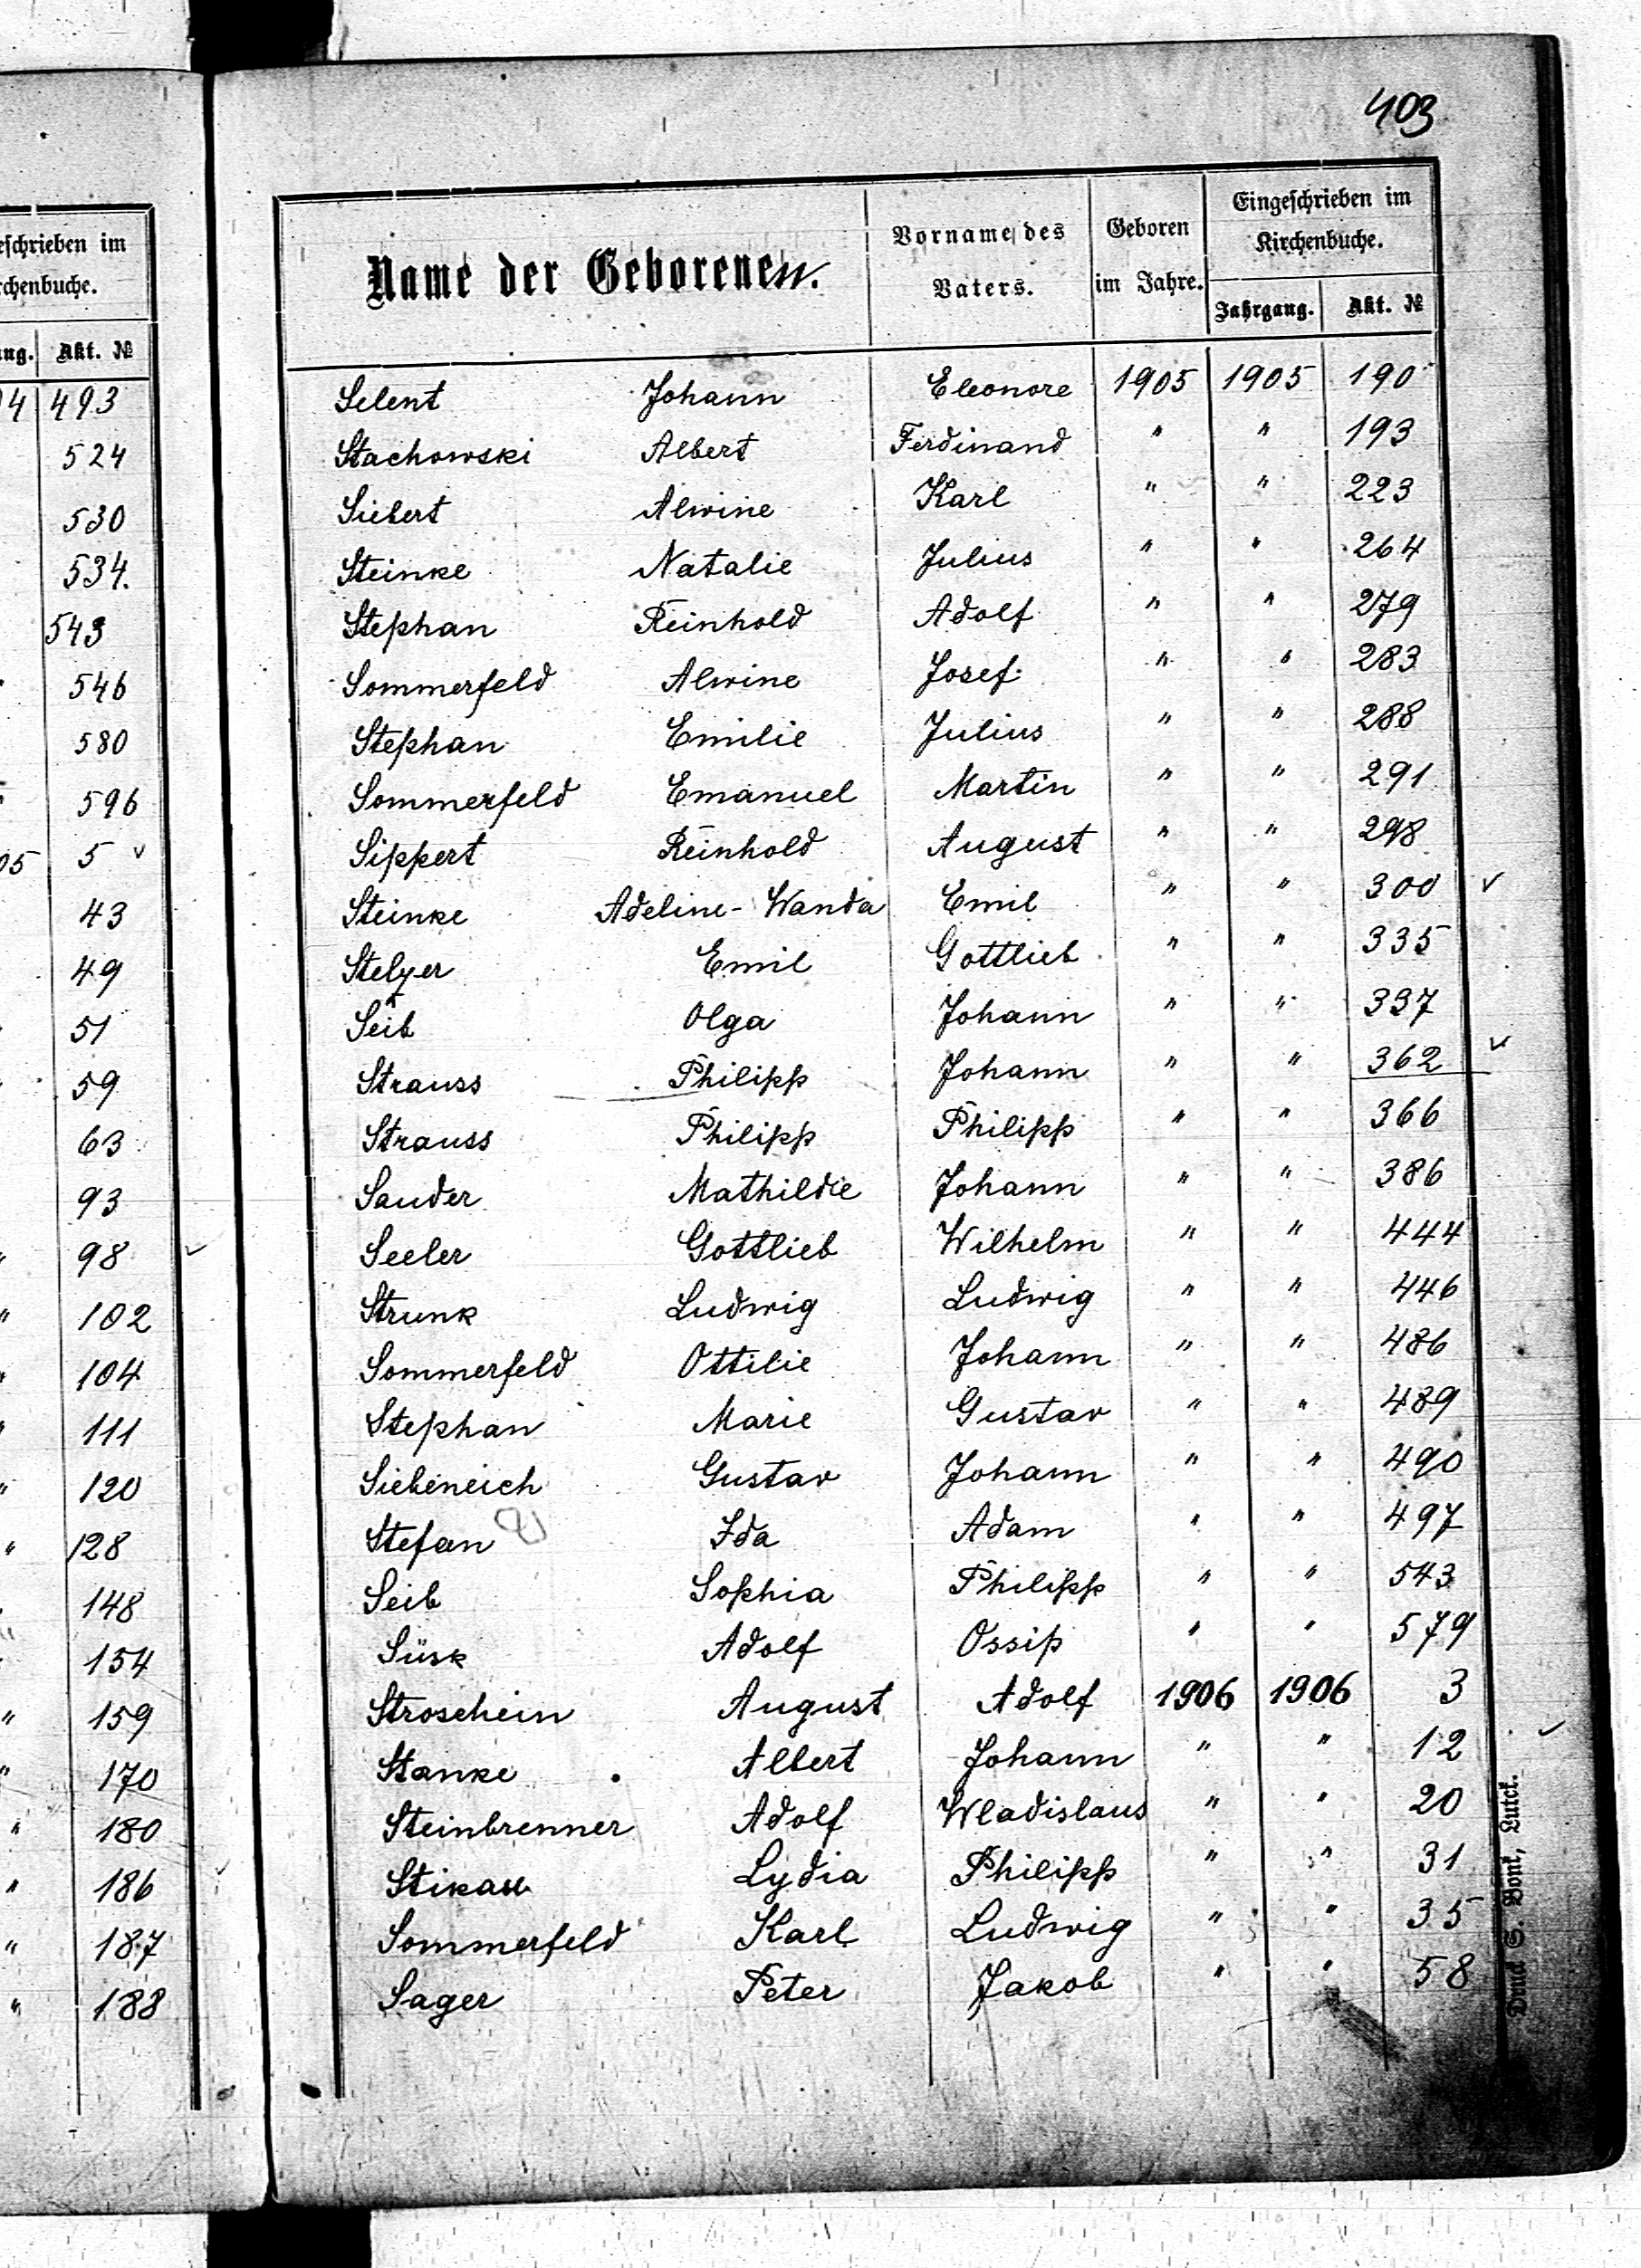 403
eschrieben im
rchenbuche.
ung. Akt. №
04 493
524
530
534.
543
546
580
596
05 5 ✓
43
49
51
59
63
93
98 ✓
" 102
" 104
" 111
" 120
" 128
148
154
" 159
" 170
" 180
" 186
" 187
" 188
Name der Geborenen. Vorname des Vaters. Geboren im Jahre. Eingeschrieben im Kirchenbuche.
Jahrgang. Akt. №
Selent Johann Eleonore 1905 1905 190
Stachowski Albert Ferdinand " " 193
Siebert Alwine Karl " " 223
Steinke Natalie Julius " " 264
Stephan Reinhold Adolf " " 279
Sommerfeld Alwine Josef " " 283
Stephan Emilie Julius " " 288
Sommerfeld Emanuel Martin " " 291
Sippert Reinhold August " " 298
Steinke Adeline-Wanda Emil " " 300 ✓
Stelzer Emil Gottlieb " " 335
Seib Olga Johann " " 337
Strauss Philipp Johann " " 362 ✓
Strauss Philipp Philipp " " 366
Sauder Mathildie Johann " " 386
Seeler Gottlieb Wilhelm " " 444
Strunk Ludwig Ludwig " " 446
Sommerfeld Ottilie Johann " " 486
Stephan Marie Gustav " " 489
Siebeneich Gustav Johann " " 490
Stefan Ida Adam " " 497
Seib Sophia Philipp " " 543
Süsk Adolf Ossip " " 579
Stroschein August Adolf 1906 1906 3
Stanke Albert Johann " " 12 ✓
Steinbrenner Adolf Wladislaus " " 20
Stikau Lydia Philipp " " 31
Sommerfeld Karl Ludwig " " 35
Sager Peter Jakob " " 58
Druck S. Bonk, Lutck.